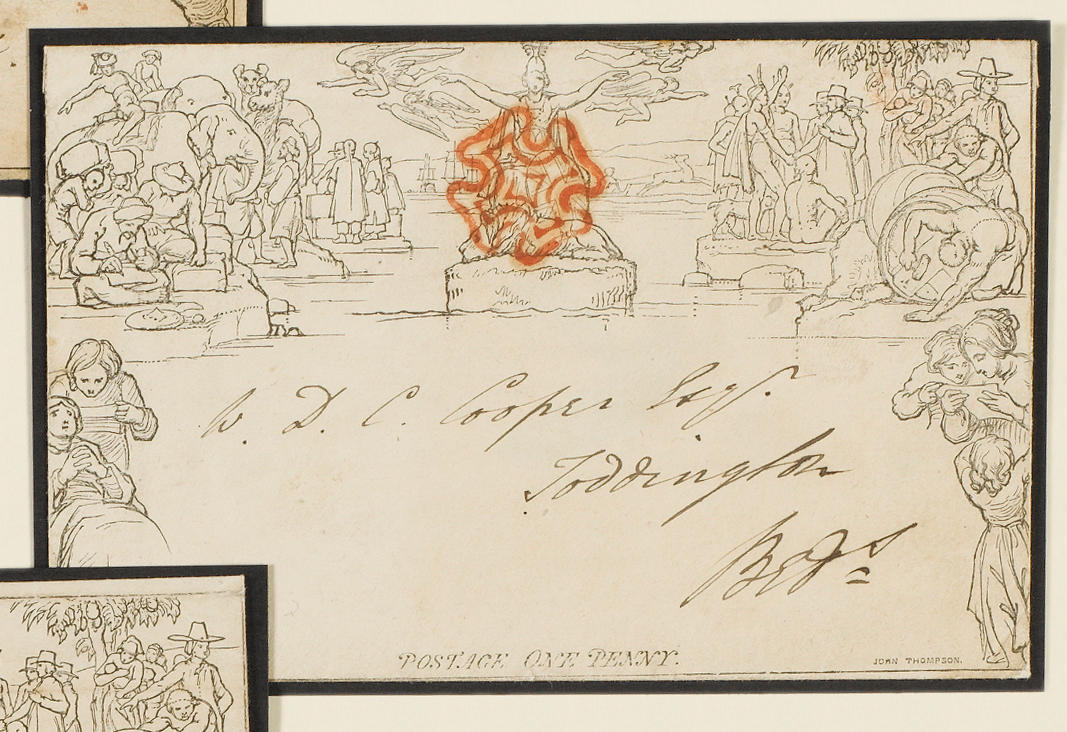 W. D. C. Cooper Esqr.
Toddington
Beds
POSTAGE ONE PENNY.
JOHN THOMPSON.